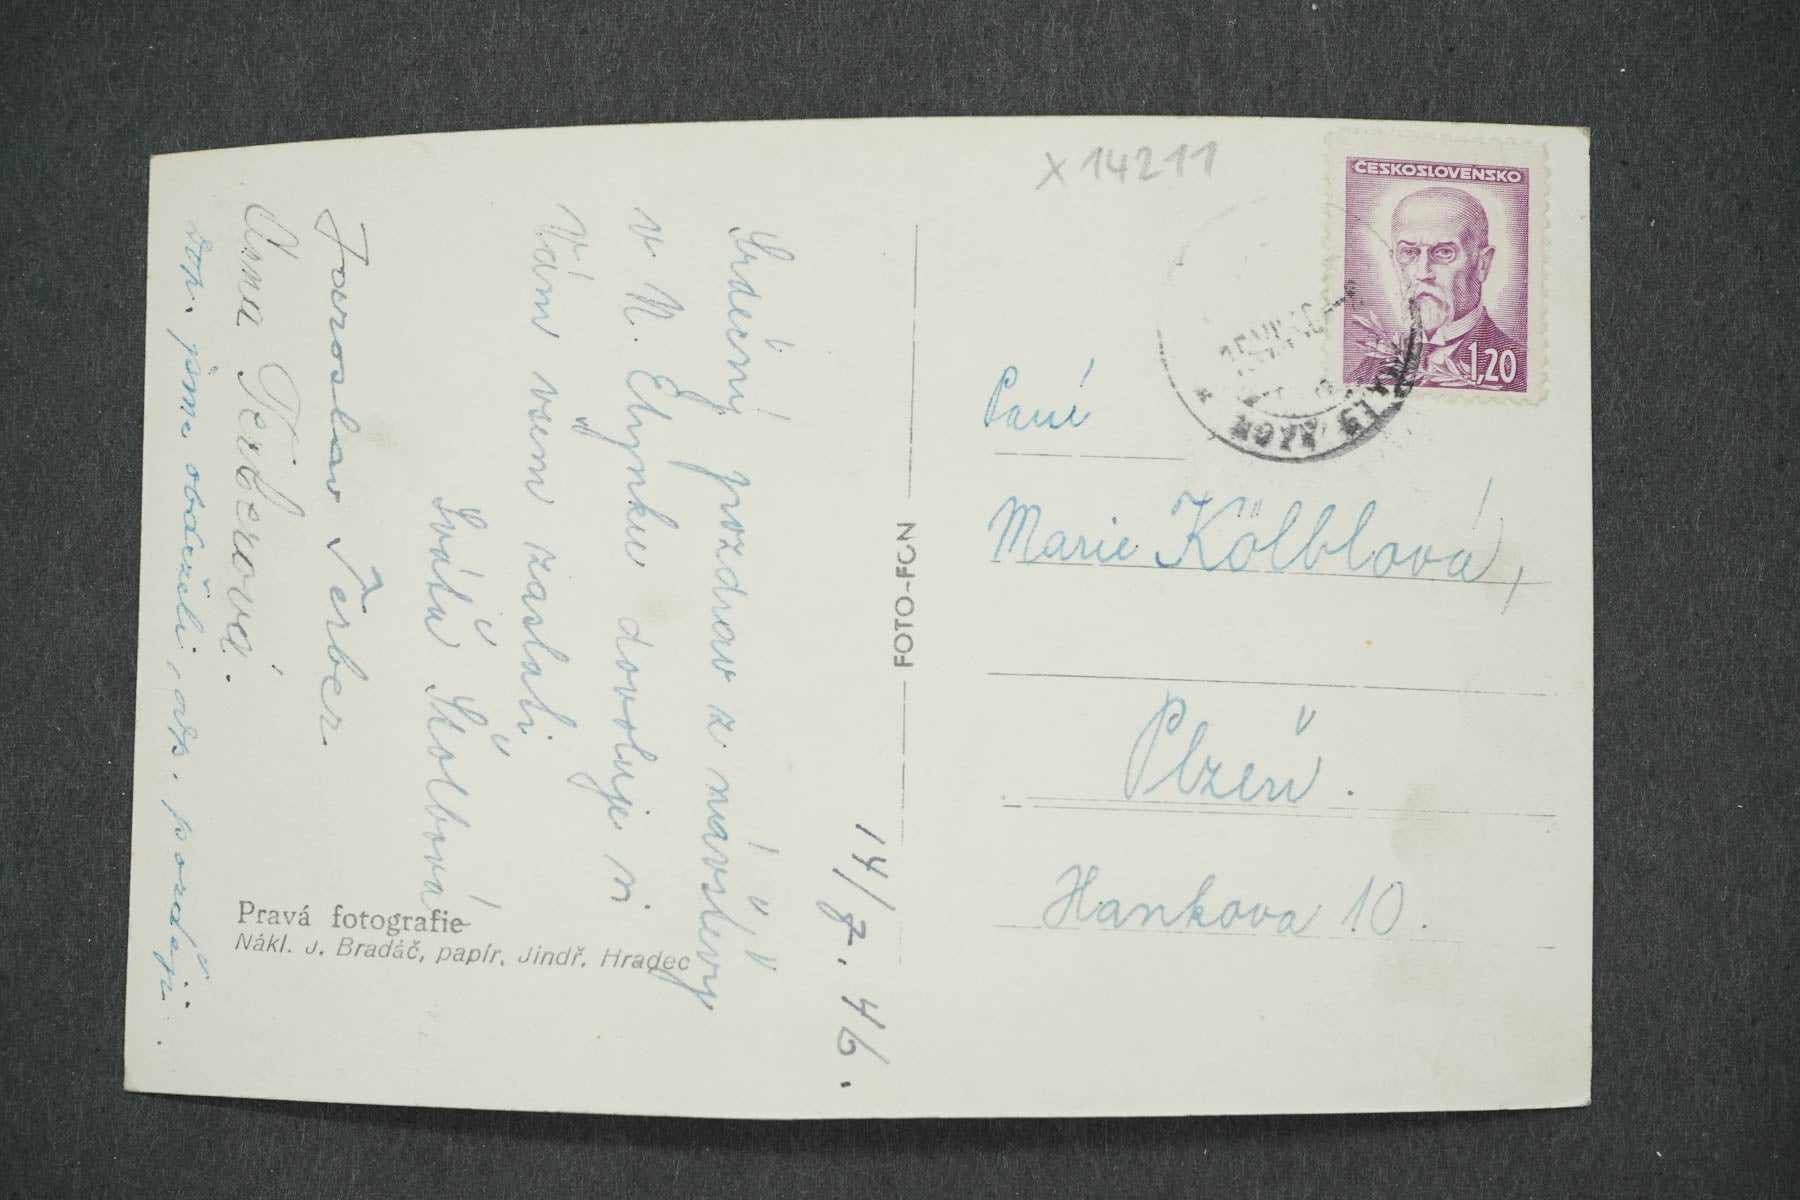 X 14211
ČESKOSLOVENSKO
1,20
Paní
Marie Kölblová,
Plzeň.
Hankova 10.
FOTO-FON
14/7. 46.
Srdečný pozdrav z návštěvy
v N. Etynku dovoluje si
Vám všem zaslati
Sváťa Školbová
Jaroslav Ferber
Anna Ferberová.
Dop. jsme obdrželi, odp. později.
Pravá fotografie
Nákl. J. Bradáč, papír. Jindř. Hradec